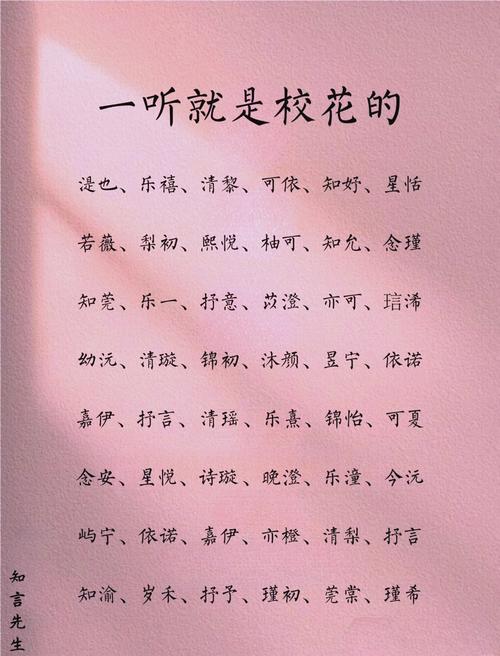 一听就是校花的
湜也、乐禧、清黎、可依、知妤、星恬
若薇、梨初、熙悦、柚可、知允、念瑾
知莞、乐一、抒意、苡澄、亦可、琂浠
幼沅、清璇、锦初、沐颜、昱宁、依诺
嘉伊、抒言、清瑶、乐熹、锦怡、可夏
念安、星悦、诗璇、晚澄、乐潼、今沅
屿宁、依诺、嘉伊、亦橙、清梨、抒言
知渝、岁禾、抒予、瑾初、莞棠、瑾希
知言先生